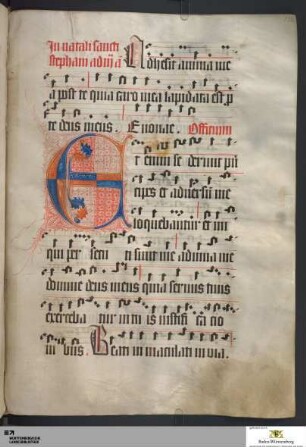 In natali sancti
stephani ad mīā Adhesit anima me
a post te quia caro mea lapidata est p
te deus meus. Euouae. Officium
Et enim se derunt prī
cipes et adversū me
loquebantur et ini
qui per secu ti sunt me adiuva me
domine deus meus quia servus tuus
exerceba tur in tu is iustifi cā no
ni bus. Beati in maculati in via.